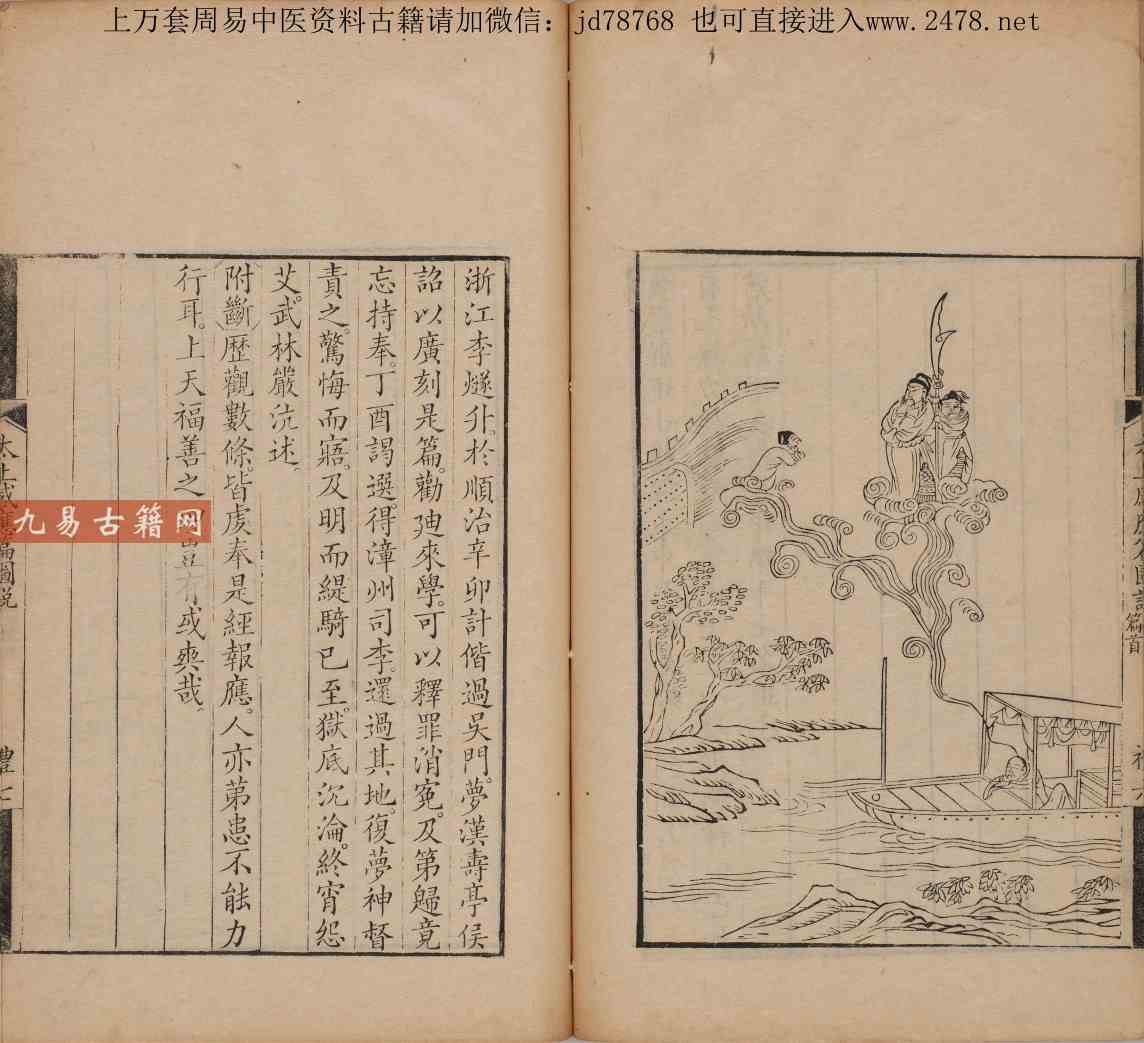 上万套周易中医资料古籍请加微信：jd78768 也可直接进入www.2478.net
篇首
浙江李燧升。於順治辛卯計偕過吳門。夢漢壽亭侯
詔以廣刻是篇。勸廸來學。可以釋罪消寃。及第歸竟
忘持奉。丁酉謁選。得漳州司李。還過其地。復夢神督
責之。驚悔而寤。及明而緹騎已至。獄底沉淪。終宵怨
艾。武林嚴沆述。
附斷歷觀數條。皆虔奉是經報應。人亦第患不能力
行耳。上天福善之 豈有或爽哉。
太上感應篇圖說
九易古籍网